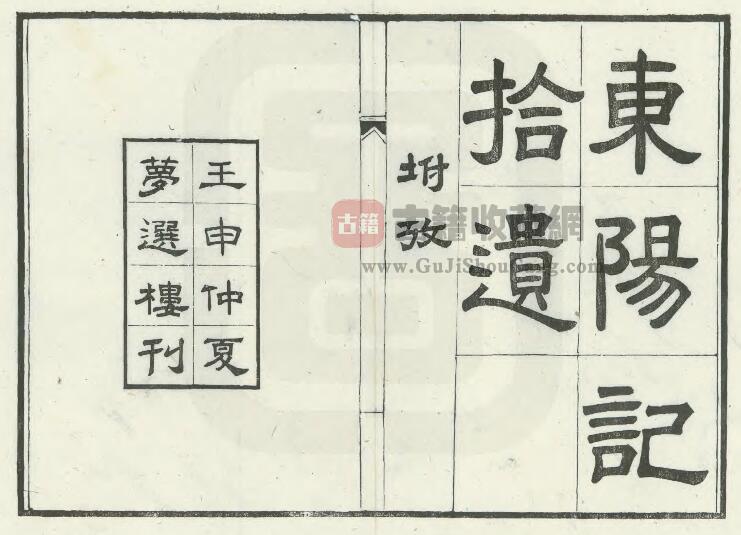 東陽記
拾遺
坿攷
壬申仲夏
夢選樓刊
古籍
古籍收藏網
www.GuJiShouCang.com